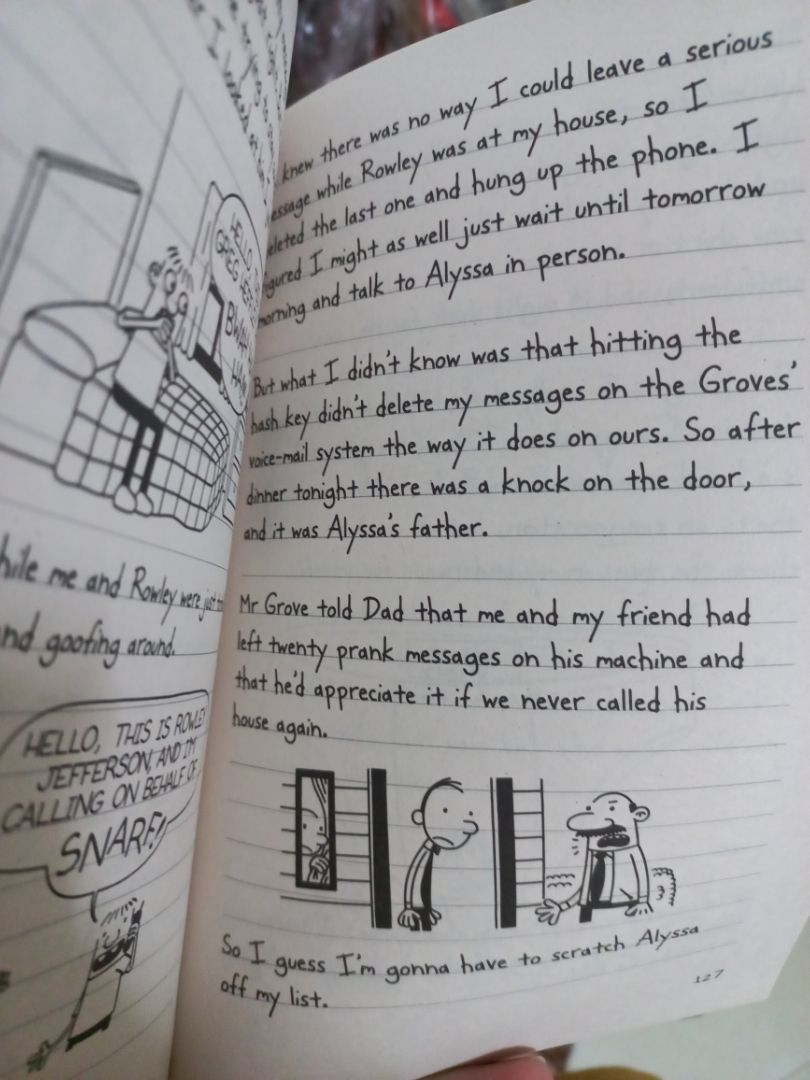 HELLO,
GREG
while me and Rowley were just
and goofing around.
HELLO, THIS IS ROWLEY
JEFFERSON, AND I'M
CALLING ON BEHALF OF
SNARF!
knew there was no way I could leave a serious
message while Rowley was at my house, so I
deleted the last one and hung up the phone. I
figured I might as well just wait until tomorrow
morning and talk to Alyssa in person.
But what I didn't know was that hitting the
hash key didn't delete my messages on the Groves'
voice-mail system the way it does on ours. So after
dinner tonight there was a knock on the door,
and it was Alyssa's father.
Mr Grove told Dad that me and my friend had
left twenty prank messages on his machine and
that he'd appreciate it if we never called his
house again.
So I guess I'm gonna have to scratch Alyssa
off my list.
127